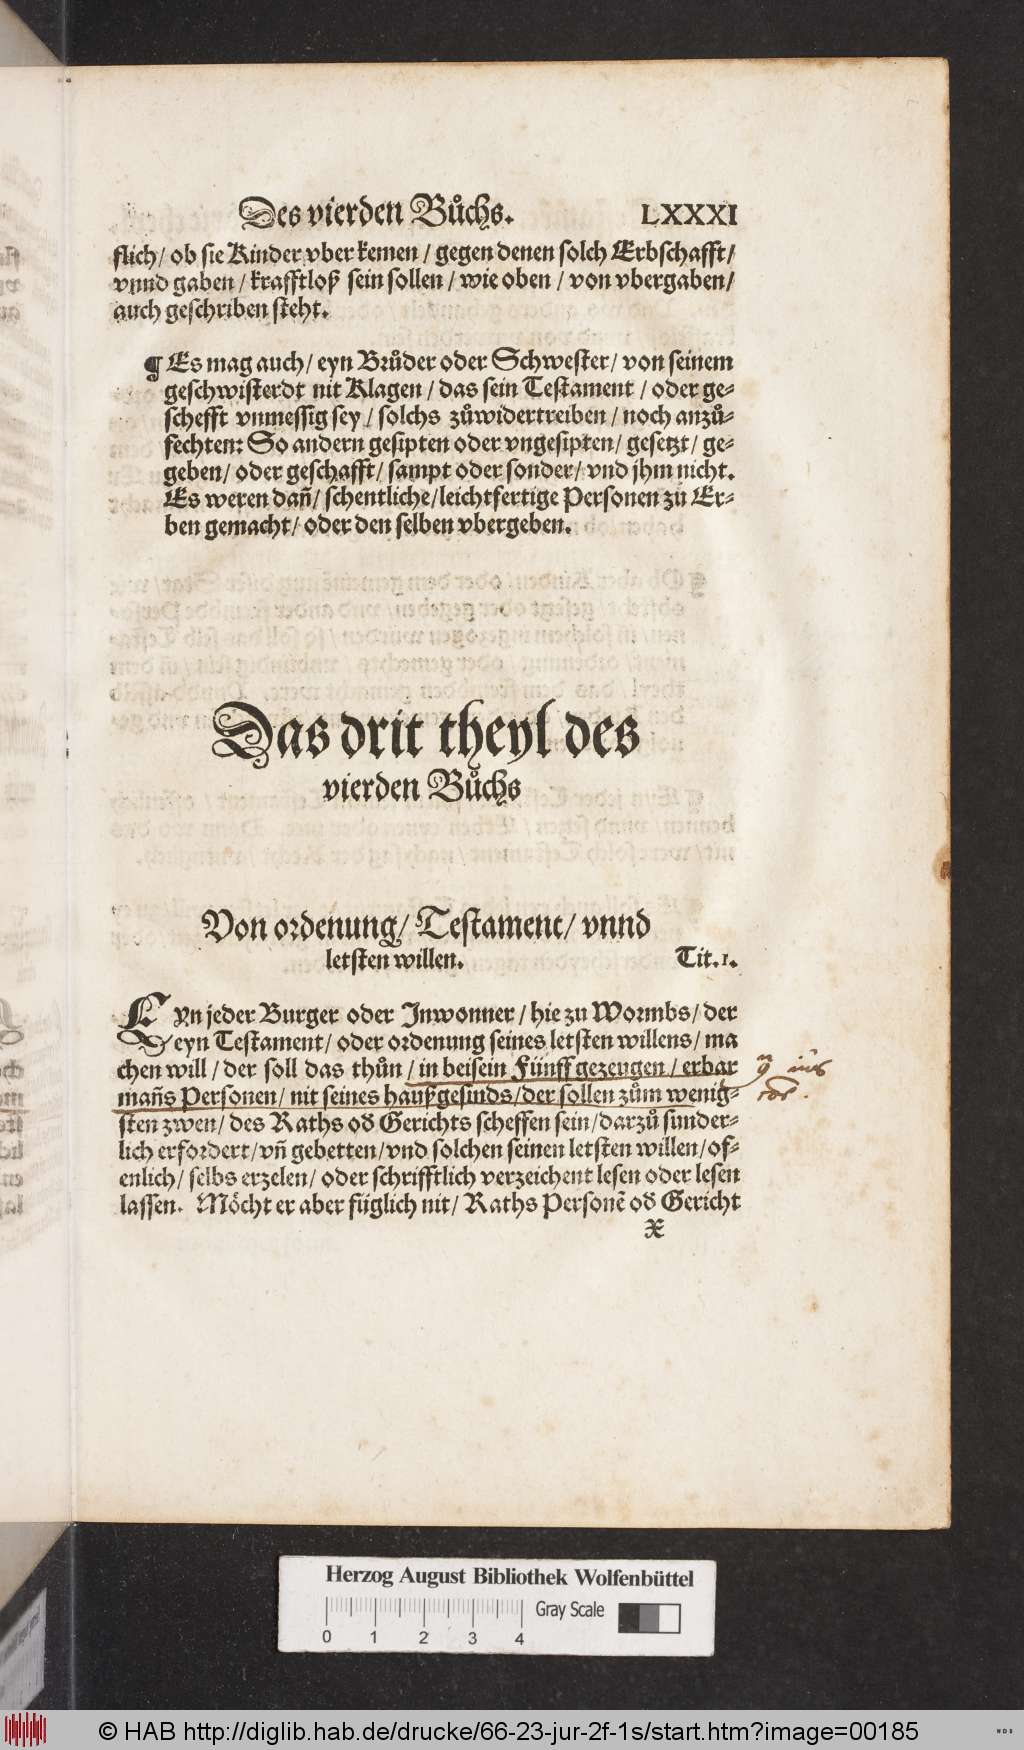 Des vierden Bůchs. LXXXI
flich/ ob sie Kinder vber kemen / gegen denen solch Erbschafft/
vnnd gaben / krafftloß sein sollen / wie oben / von vbergaben/
auch geschriben steht.
¶ Es mag auch/ eyn Brůder oder Schwester/ von seinem
geschwisterdt nit Klagen / das sein Testament / oder ge=
schefft vnmessig sey / solchs zůwidertreiben / noch anzů=
fechten: So andern gesipten oder vngesipten/ gesetzt/ ge=
geben/ oder geschafft/ sampt oder sonder/ vnd jhm nicht.
Es weren dañ/ schentliche/leichtfertige Personen zů Er=
ben gemacht/ oder den selben vbergeben.
Das drit theyl des
vierden Bůchs
Von ordenung/ Testament/ vnnd
letsten willen. Tit.1.
EYn jeder Burger oder Inwonner / hie zu Wormbs/ der
eyn Testament/ oder ordenung seines letsten willens/ ma
chen will / der soll das thůn / in beisein Fünff gezeugen / erbar
mañs Personen/ nit seines haußgesinds/der sollen zům wenig=
sten zwen/ des Raths od̃ Gerichts scheffen sein/darzů sunder=
lich erfordert/ vñ gebetten/vnd solchen seinen letsten willen/of=
enlich/ selbs erzelen/ oder schrifftlich verzeichent lesen oder lesen
lassen. Möcht er aber füglich nit/ Raths Personẽ od̃ Gericht
X
Herzog August Bibliothek Wolfenbüttel
Gray Scale
0 1 2 3 4
© HAB http://diglib.hab.de/drucke/66-23-jur-2f-1s/start.htm?image=00185